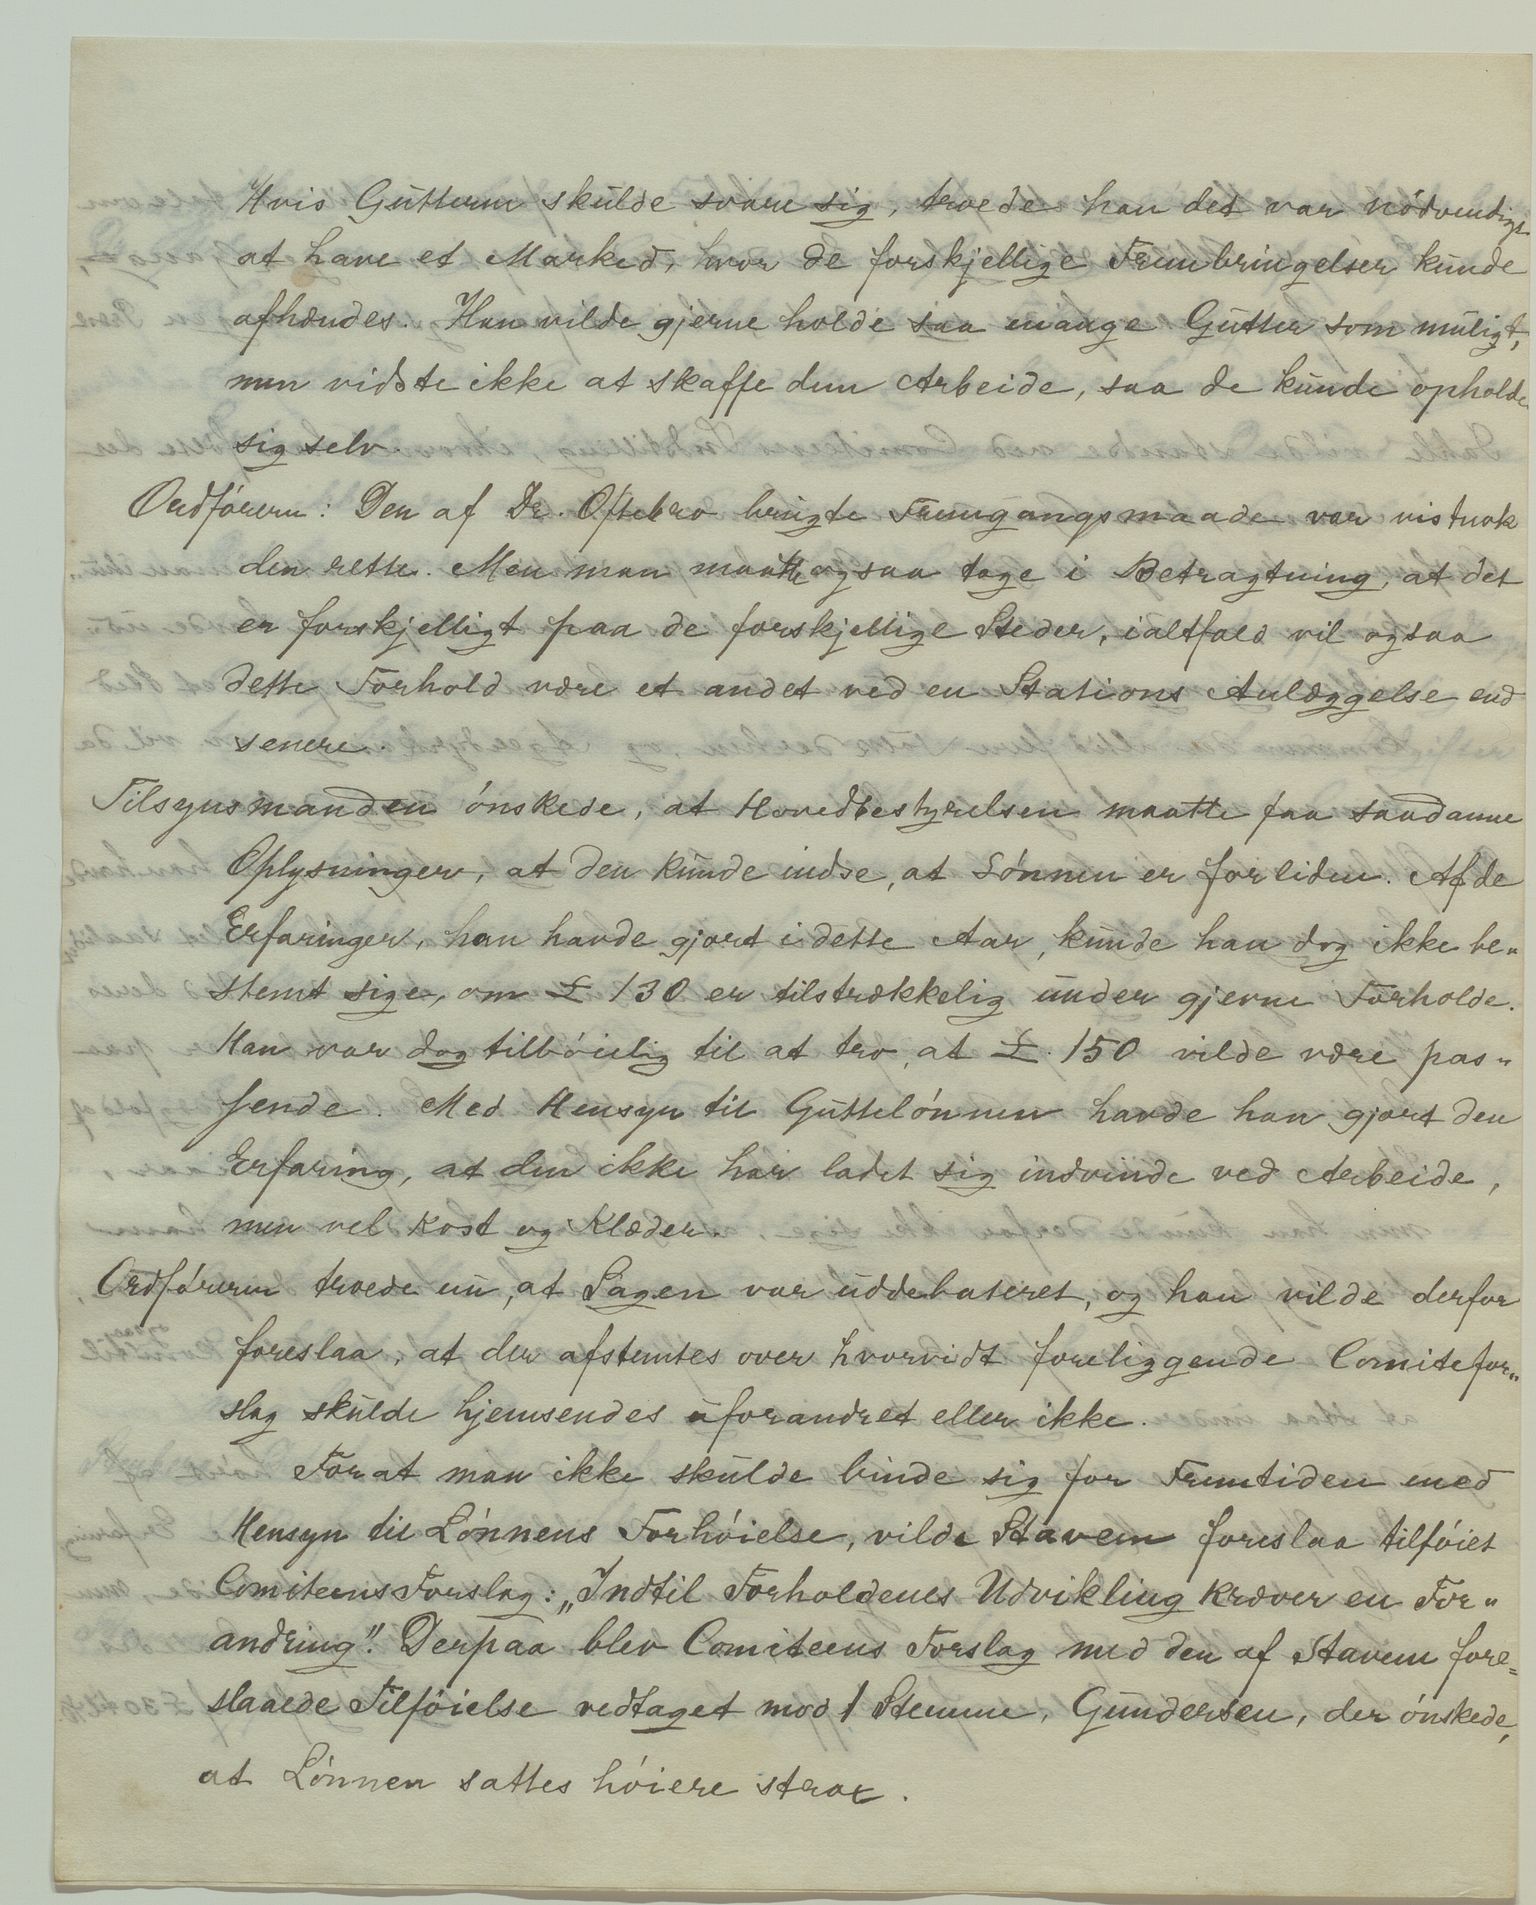 Hvis Gutterne skulde svare sig, troede han det var nödvendigt
at have et Marked, hvor de forskjellige Frembringelser kunde
afhændes. Han vilde gjerne holde saa mange Gutter som muligt,
men vidste ikke at skaffe dem Arbeide, saa de kunde opholde
sig selv.
Ordföreren: Den af Dr. Oftebro brugte Fremgangsmaade var vistnok
den rette. Men man maatte ogsaa tage i Betragtning, at det
er forskjelligt paa de forskjellige Steder, ialtfald vil ogsaa
dette Forhold være et andet ved en Stations Anlæggelse end
senere.
Tilsynsmanden önskede, at Hovedbestyrelsen maatte faa saadanne
Oplysninger, at den kunde indse, at Lönnen er for liden. Af de
Erfaringer, han havde gjort i dette Aar, kunde han dog ikke be„
stemt sige, om £ 130 er tilstrækkelig under gjevne Forholde.
Han var dog tilböielig til at tro, at £. 150 vilde være pas„
sende. Med Hensyn til Guttelönnen havde han gjort den
Erfaring, at den ikke har ladet sig indvinde ved Arbeide,
men vel Kost og Klæder.
Ordföreren troede nu, at Sagen var uddebateret, og han vilde derfor
foreslaa, at der afstemtes over hvorvidt foreliggende Comitefor„
slag skulde hjemsendes uforandret eller ikke.
Forat man ikke skulde binde sig for Fremtiden med
Hensyn til Lönnens Forhöielse, vilde Stavem foreslaa tilföiet
Comiteens Forslag: „Indtil Forholdenes Udvikling kræver en For„
andring". Derpaa blev Comiteens Forslag med den af Stavem fore=
slaaede Tilföielse vedtaget mod 1 Stemme, Gundersen, der önskede,
at Lönnen sattes höiere strax.